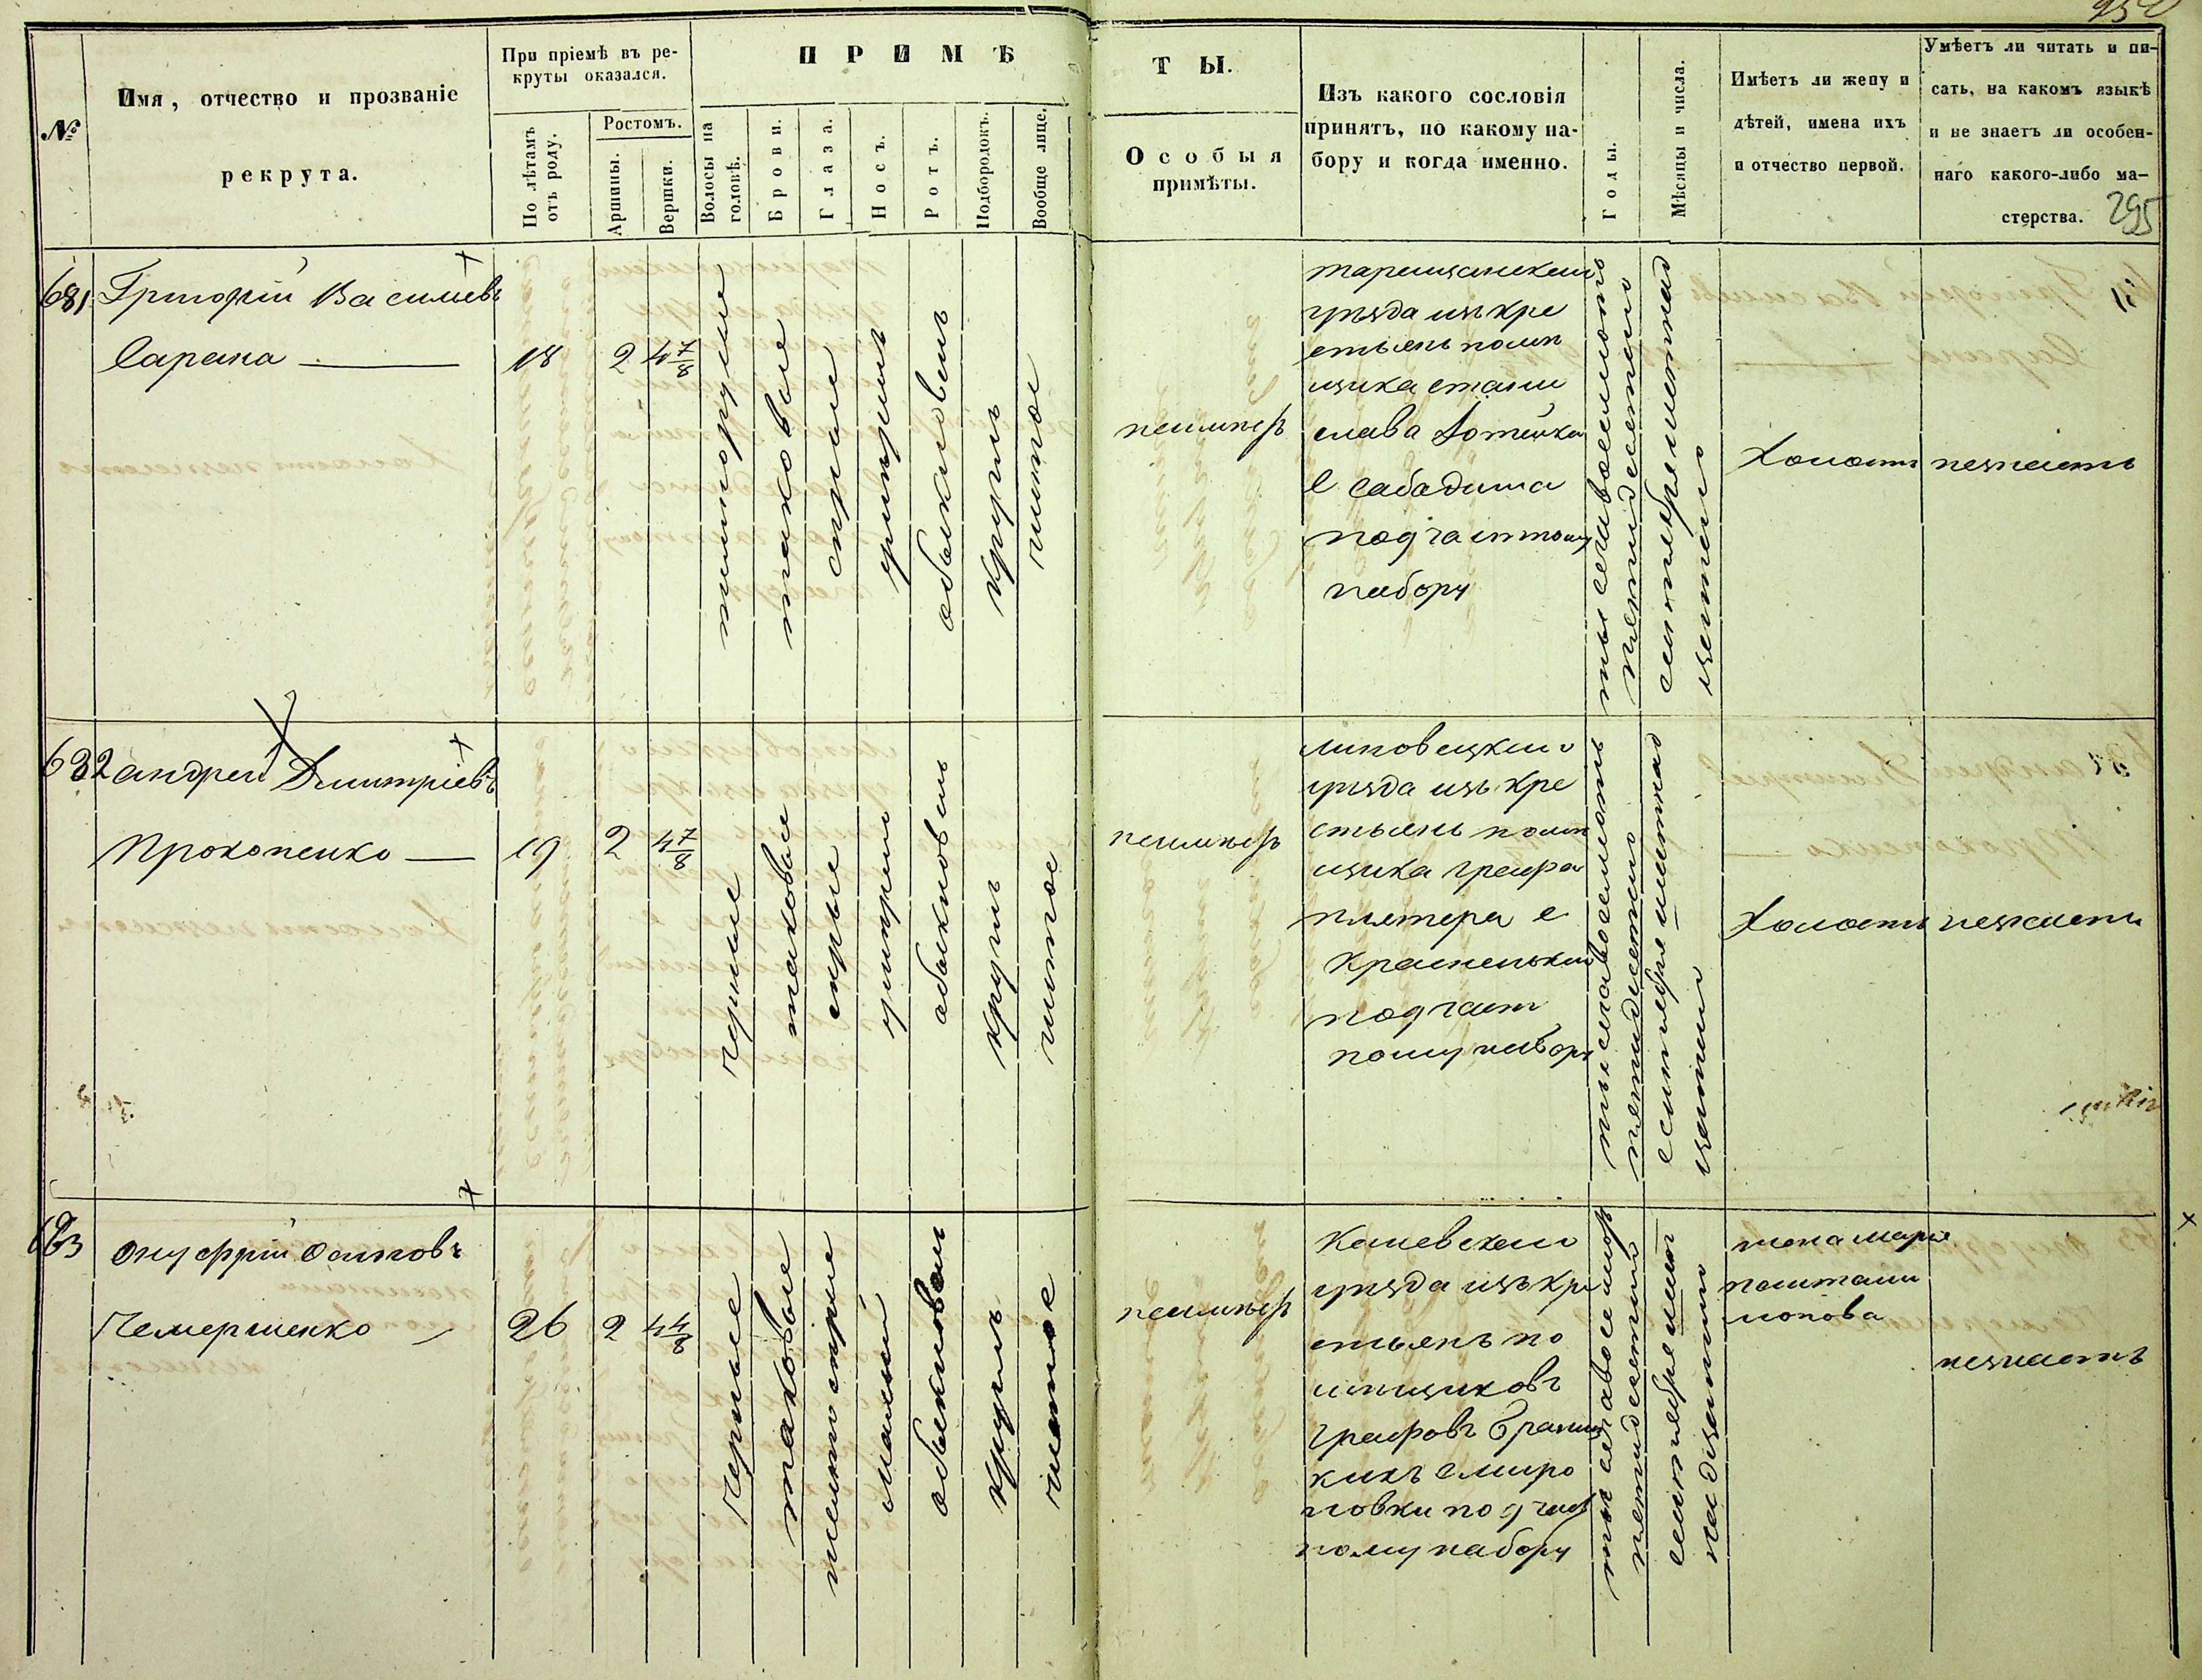 №
Имя, отчество и прозваніе
рекрута.
При пріемѣ въ ре-
круты оказался.
По лѣтамъ
отъ роду.
Ростомъ.
Аршины.
Вершки.
ПРИМѢ
Волосы на
головѣ.
Брови.
Глаза.
Носъ.
Ротъ.
Подбородокъ.
Вообще лице.
ТЫ.
Особыя
примѣты.
Изъ какого сословія
принятъ, по какому на-
бору и когда именно.
Годы.
Мѣсяцы и числа.
Имѣетъ ли жену и
дѣтей, имена ихъ
и отчество первой.
Умѣетъ ли читать и пи-
сать, на какомъ языкѣ
и не знаетъ ли особен-
наго какого-либо ма-
стерства.
295
681
Григорій Васильевъ
Сарана
18
2
4 7/8
таковые
серые
обыкновен
кругл
чистое
неимѣетъ
уезда изъ кре
стьянъ помѣ
щика стани
слава
с
под частному
набору
тысячавосемьсотъ
пятидесятого
сентября
Холостъ
незнаетъ
682
андрей Дмитріевъ
Прокопенко
19
2
4 7/8
черные
таковые
серые
обыкновен
кругл
чистое
неимѣетъ
липовецкого
уезда изъ кре
стьянъ помѣ
щика графа
плятера с
под част
ному набору
тысячавосемьсотъ
пятидесятого
сентября
Холостъ
незнаетъ
683
Онуфрій Осиповъ
Чемерженко
26
2
4 4/8
черные
таковые
малый
обыкновен
кругл
чистое
неимѣетъ
Каневского
уезда изъ кре
стьянъ по
мещиковъ
графовъ Браниц
кихъ с миро
новки под част
ному набору
тысячавосемьсотъ
пятидесятого
сентября
жена Маріа
незнаетъ